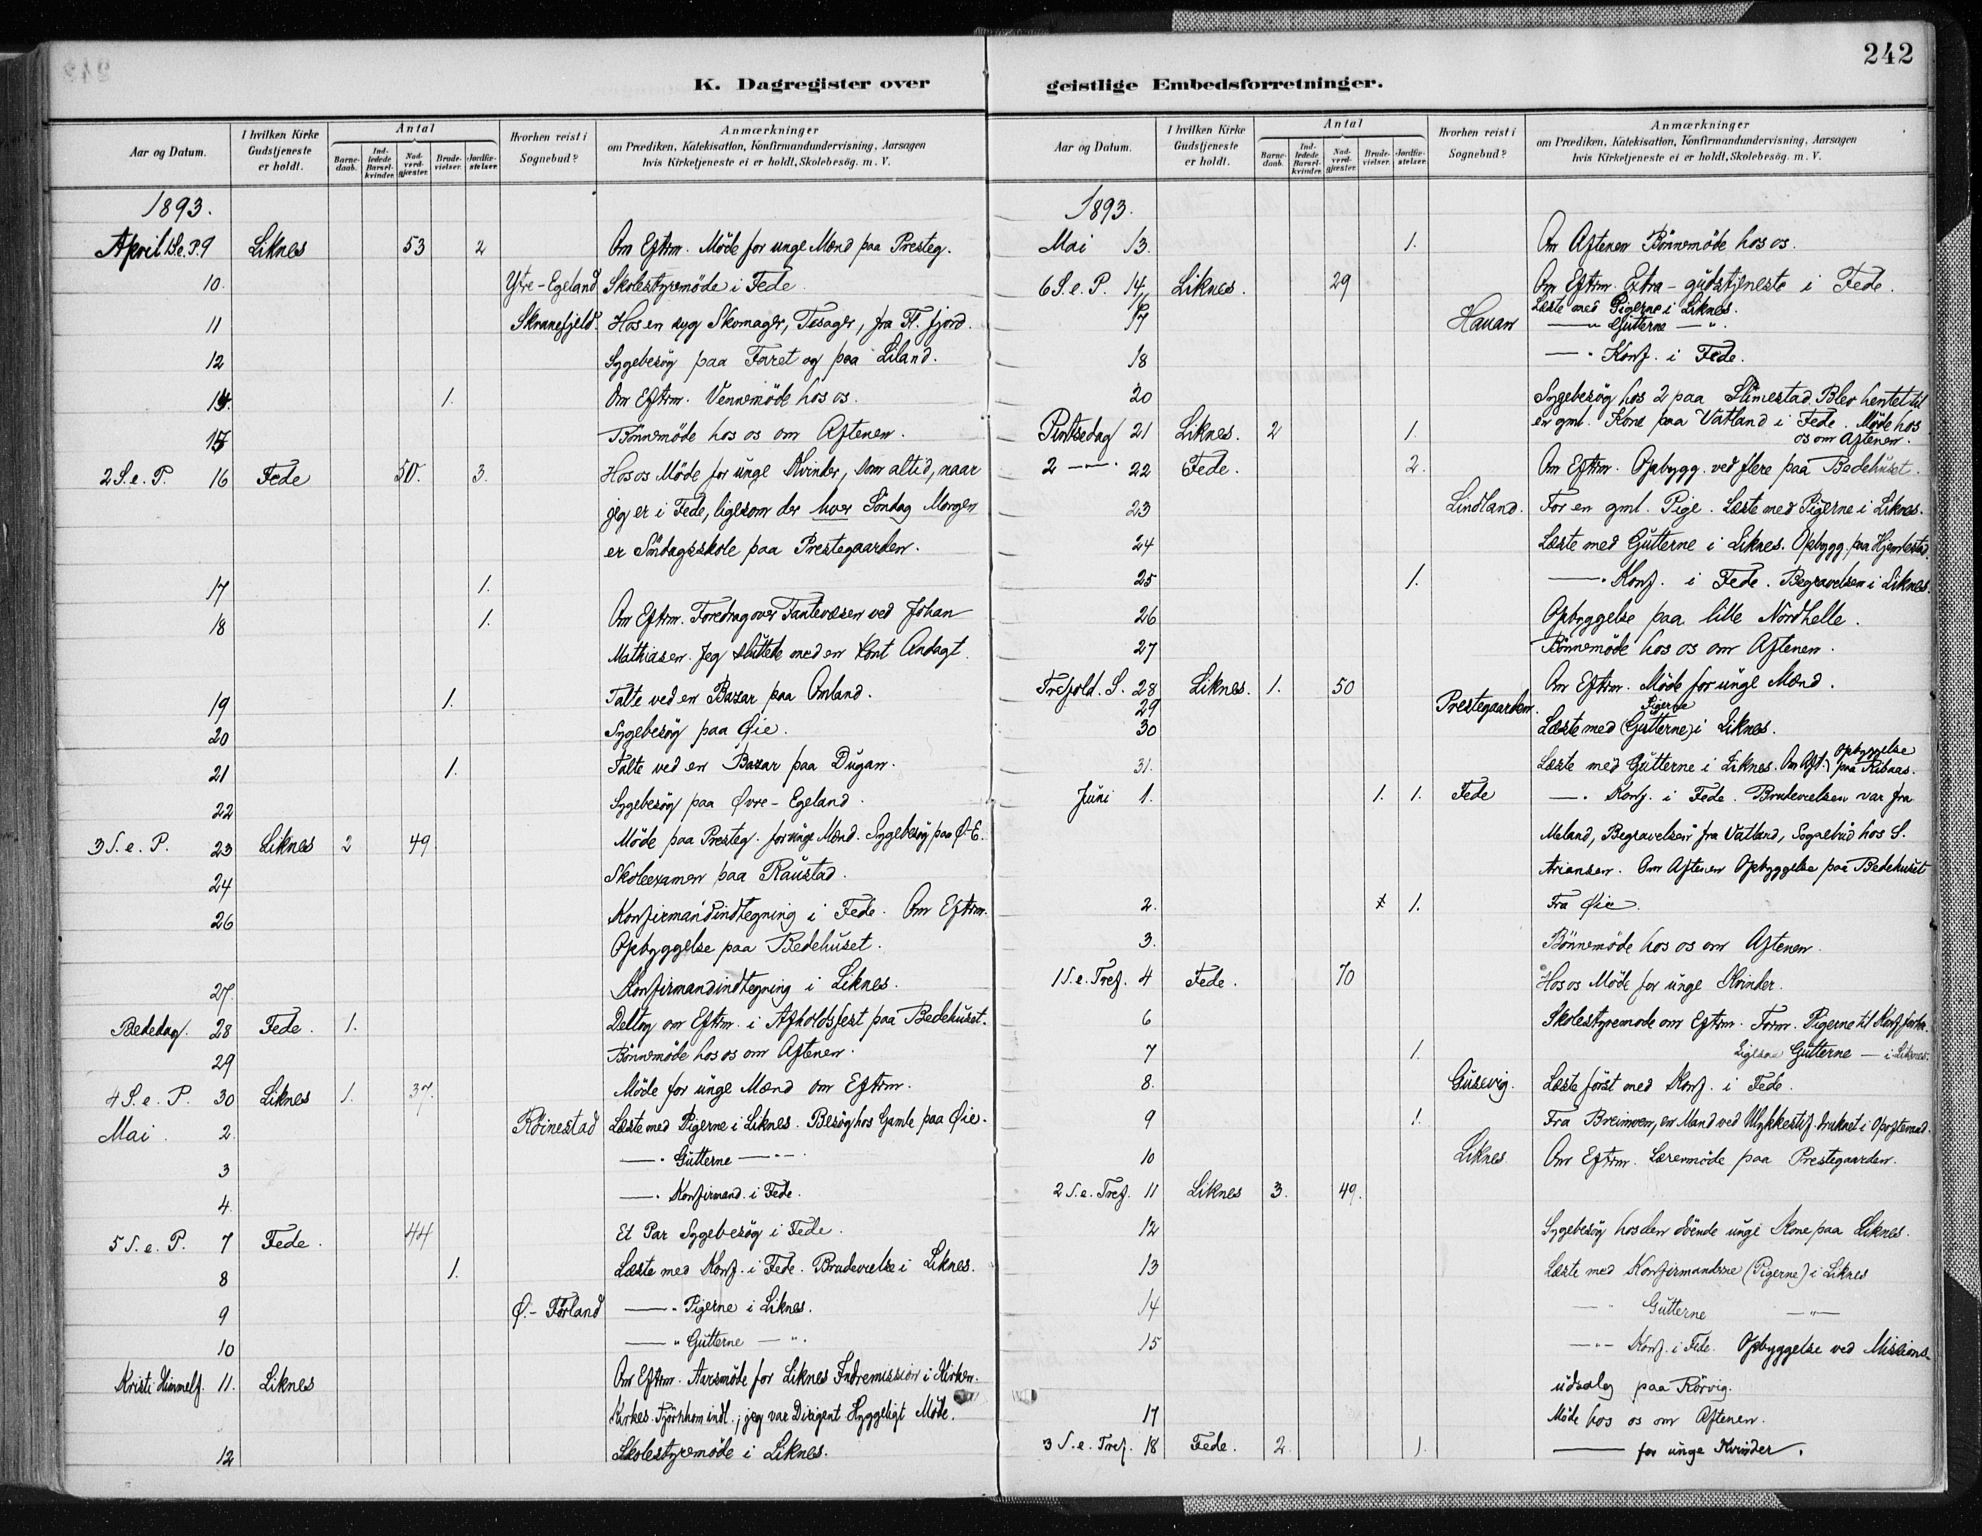 242
K. Dagregister over geistlige Embedsforretninger.
Aar og Datum. I hvilken Kirke Gudstjeneste er holdt. Antal Barnedaab. Indledede Barselkvinder. Nadverdgjæster. Brudevielser. Jordfæstelser. Hvorhen reist i Sognebud? Anmærkninger om Prædiken, Katekisation, Konfirmandundervisning, Aarsagen hvis Kirketjeneste ei er holdt, Skolebesög. m. V.
1893.
April 1 S. e. P. 9 Liknes 53 2 Om Eftrm. Møde for unge Mænd paa Presteg.
10. Ytre-Egeland Skolestyremøde i Fede.
11 Skranefjeld. Hos en syg Skomager, Tesager, fra Fl. fjord.
12 Sygebesøg paa Faret og paa Liland.
14. 1. Om Eftrm. Vennemøde hos os.
15 Bønnemøde hos os om Aftenen.
2 S. e. P. 16 Fede 50. 3. Hos os Møde for unge Kvinder, som altid, naar
jeg er i Fede, ligesom der hver Søndag Morgen
er Søndagsskole paa Prestegaarden.
17 1.
18 1. Om Eftrm. Foredrag over Fantevæsen ved Johan
Mathiasen. Jeg sluttede med en kont Andagt.
19 1. Talte ved en Bazar paa Omland.
20 Sygebesøg paa Øie.
21 1. Talte ved en Bazar paa Dugan.
22 Sygebesøg paa Øvre-Egeland.
3 S. e. P. 23 Liknes 2 49 Møde paa Presteg. for unge Mænd. Sygebesøg paa Ø-E.
24 Skoleexamen paa Raustad.
26 Konfirmandindtegning i Fede. Om Eftrm.
Opbyggelse paa Bedehuset.
27 Konfirmandindtegning i Liknes.
Bededag. 28 Fede. 1. Deltog om Eftrm. i Afholdsfest paa Bedehuset.
29 Bønnemøde hos os om Aftenen.
4 S. e. P. 30 Liknes 1. 37. Møde for unge Mænd om Eftrm.
Mai 2. Røinestad Læste med Pigerne i Liknes. Besøg hos Gamle paa Øie.
3 —„— Gutterne —„—
4. —„— Konfirmand. i Fede.
5 S. e. P. 7 Fede. 44 Et Par Sygebesøg i Fede.
8 1. Læste med Konf. i Fede. Brudevielse i Liknes.
9 Ø.-Førland —„— Pigerne i Liknes.
10 —„— Gutterne —„—
Kristi Himmelf. 11. Liknes Om Eftrm. Aarsmøde for Liknes Indremission i Kirken.
Kirkes. Fjørthom indl., jeg var Dirigent Hyggeligt Møde.
12 Skolestyremøde i Liknes.
Aar og Datum. I hvilken Kirke Gudstjeneste er holdt. Antal Barnedaab. Indledede Barselkvinder. Nadverdgjæster. Brudevielser. Jordfæstelser. Hvorhen reist i Sognebud? Anmærkninger om Prædiken, Katekisation, Konfirmandundervisning, Aarsagen hvis Kirketjeneste ei er holdt, Skolebesög. m. V.
1893.
Mai 13. 1. Om Aftenen Bønnemøde hos os.
6 S. e. P. 14 Liknes. 29 Om Eftrm. Extra-gudstjeneste i Fede.
16 Læste med Pigerne i Liknes.
17 Hauan —„— Gutterne —„—
18 —„— Konf. i Fede.
20 Sygebesøg hos 2 paa Slimestad. Blev hentet til
en gml. Kone paa Vatland i Fede. Møde hos
os om Aftenen.
Pintsedag 21 Liknes. 2 1.
2 —„— 22 Fede. 2. Om Eftrm. Opbygg. ved flere paa Bedehuset.
23 Lindland. For en gml. Pige. Læste med Pigerne i Liknes.
24 Læste med Gutterne i Liknes. Opbygg. paa Hjemlestad.
25 1. —„— Konf. i Fede. Begravelsen i Liknes.
26 Opbyggelse paa lille Nordhelle.
27 Bønnemøde hos os om Aftenen.
Trefold. S. 28 Liknes. 1. 50 Om Eftrm. Møde for unge Mænd.
29 Prestegaarden. Pigerne
30 Læste med (Gutterne) i Liknes.
31. Læste med Gutterne i Liknes. Om Aft. Opbyggelse paa Risnæs.
Juni 1. 1. 1. Fede —„— Konf. i Fede. Brudevielsen var fra
Meland, Begravelsen fra Vatland, Sognebud hos S.
Ariansen. Om Aftenen Opbyggelse paa Bedehuset
2. 1. Fra Øie.
3. Bønnemøde hos os om Aftenen.
1 S. e. Tref. 4 Fede. 70 Hos os Møde for unge Kvinder.
6 Skolestyremøde om Eftrm. Form. Pigerne til Konf.forbr.
7 1. Ligesaa Gutterne — i Liknes.
8. Gusevig. Læste først med Konf. i Fede.
9 1. Fra Breimoen, en Mand ved Ulykkestif. druknet i
10 Liknes. Om Eftrm. Læremøde paa Prestegaarden.
2 S. e. Tref. 11 Liknes 3. 49.
12 Sygebesøg hos den døende unge Kone paa Liknes.
13 Læste med Konfirmanderne (Pigerne) i Liknes
14 —„— Gutterne —„—
15 —„— Konf. i Fede. Opbyggelse ved Missions-
udsalg paa Rørvig.
17 Møde hos os om Aftenen.
3 S. e. Tref. 18 Fede. 2. 1. —— for unge Kvinder.